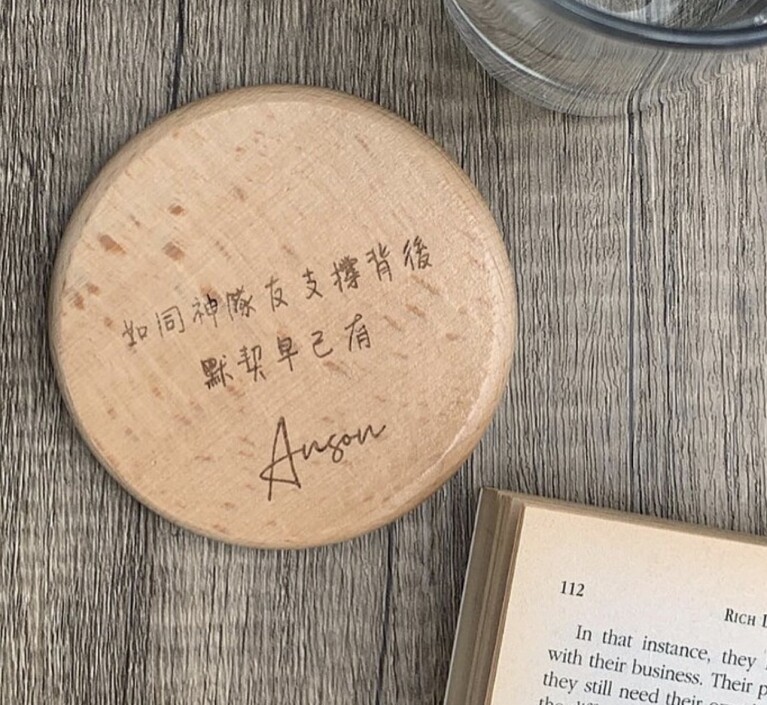 如同神隊友支撐背後
默契早已有
Anson
112
RICH
In that instance, they
with their business. Their
they still need their